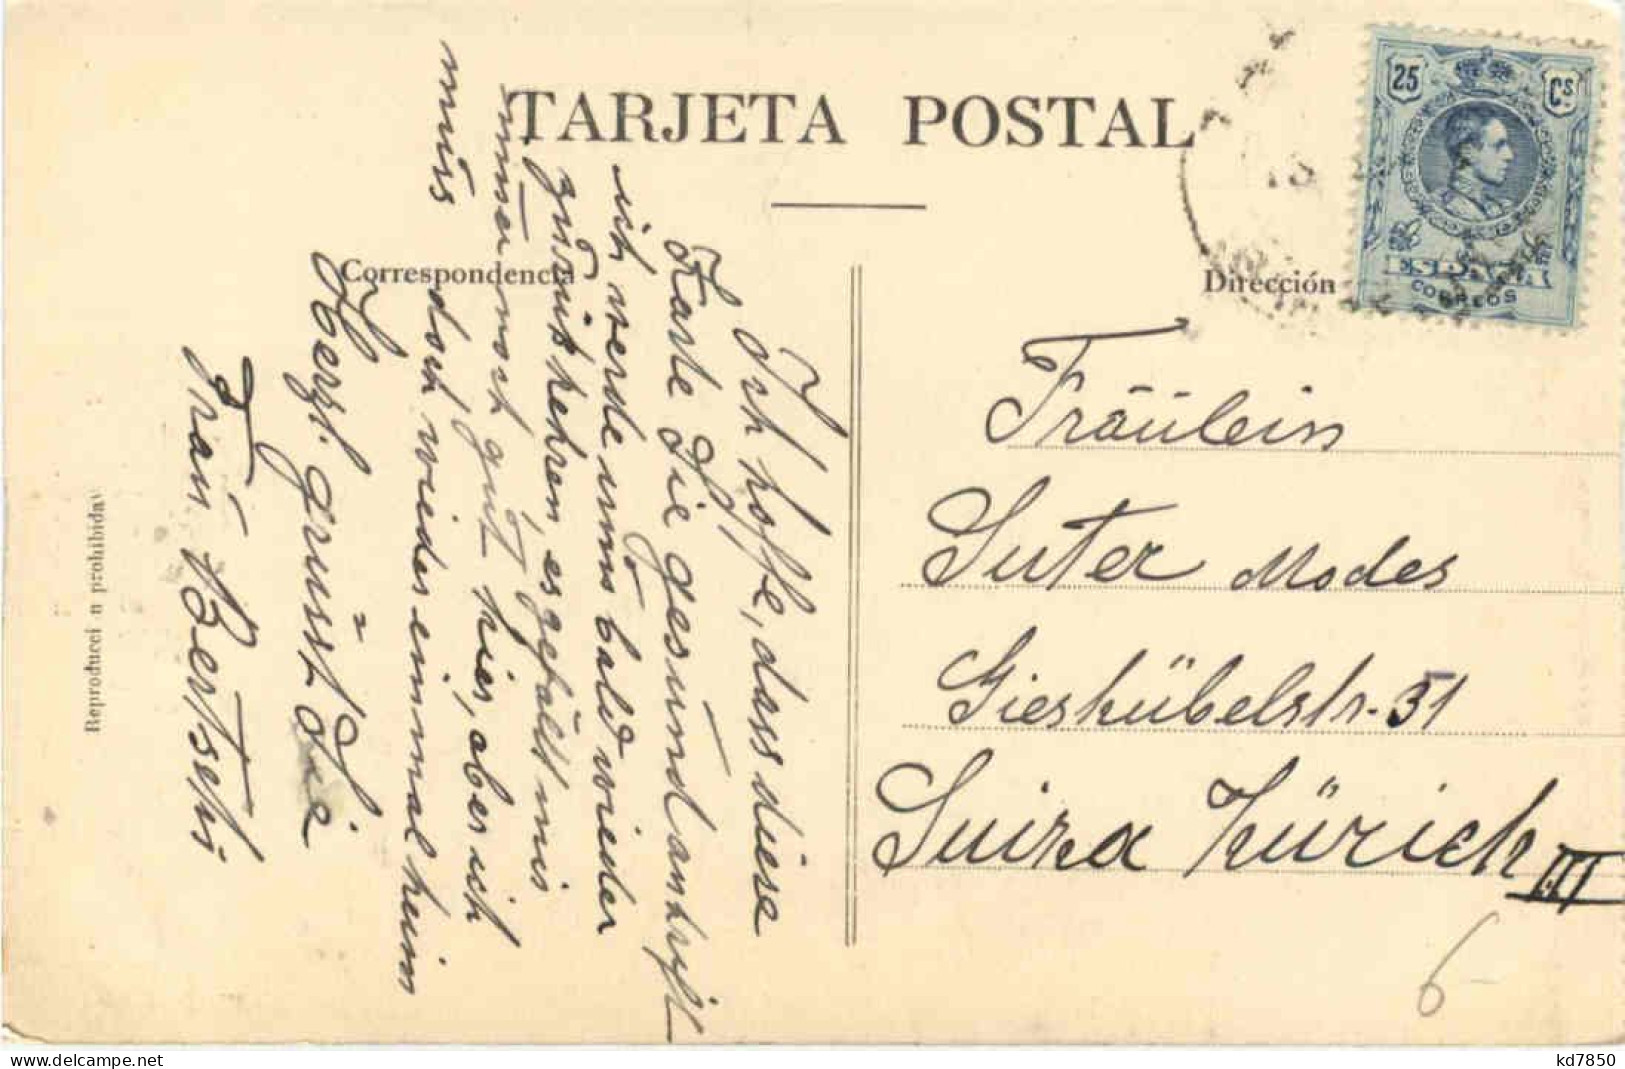 TARJETA POSTAL
Correspondencia
Dirección
25 Cs
ESPAÑA
CORREOS
Ich hoffe, dass diese
Karte Sie gesund antrifft
ich werde nun bald wieder
zurückkehren, es gefällt mir
immer noch gut hier, aber ich
doch wieder einmal heim
muss
Herzl. grüsst Sie
Frau Bertschi
Fräulein
Suter Modes
Giesshübelstr. 51
Suiza Zürich III
Reproducci n prohibida
6-
kd7850